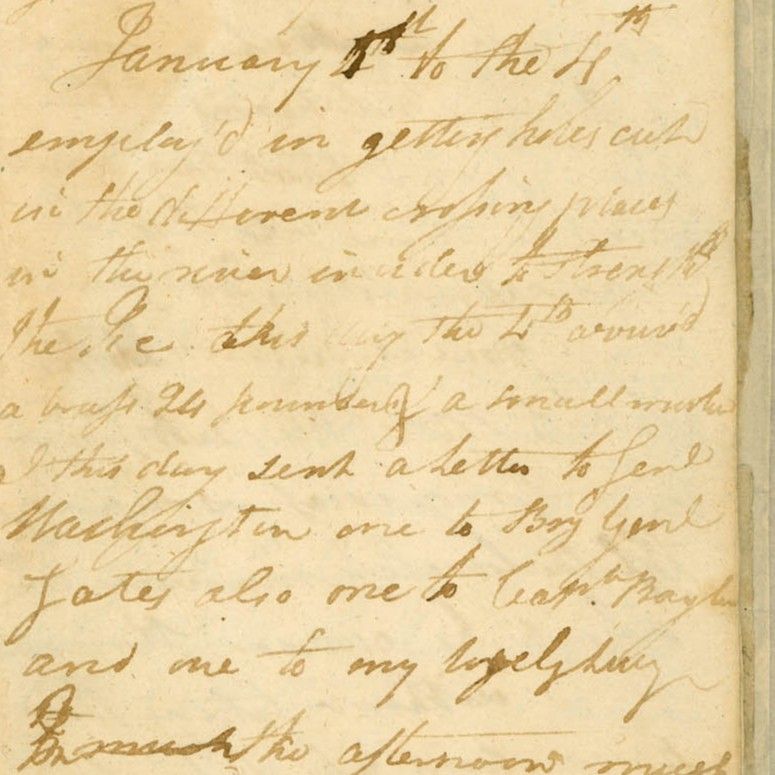 January 1st to the 4th
employ'd in getting holes cut
in the different crossing places
in the river in order to strength'n
the Ice this day the 4th arrived
a brass 24 pounder & a small
I this day sent a Letter to Genl
Washington one to Brig Genl
Gates also one to Capt. Baylor
and one to my lovely Lucy
the afternoon much